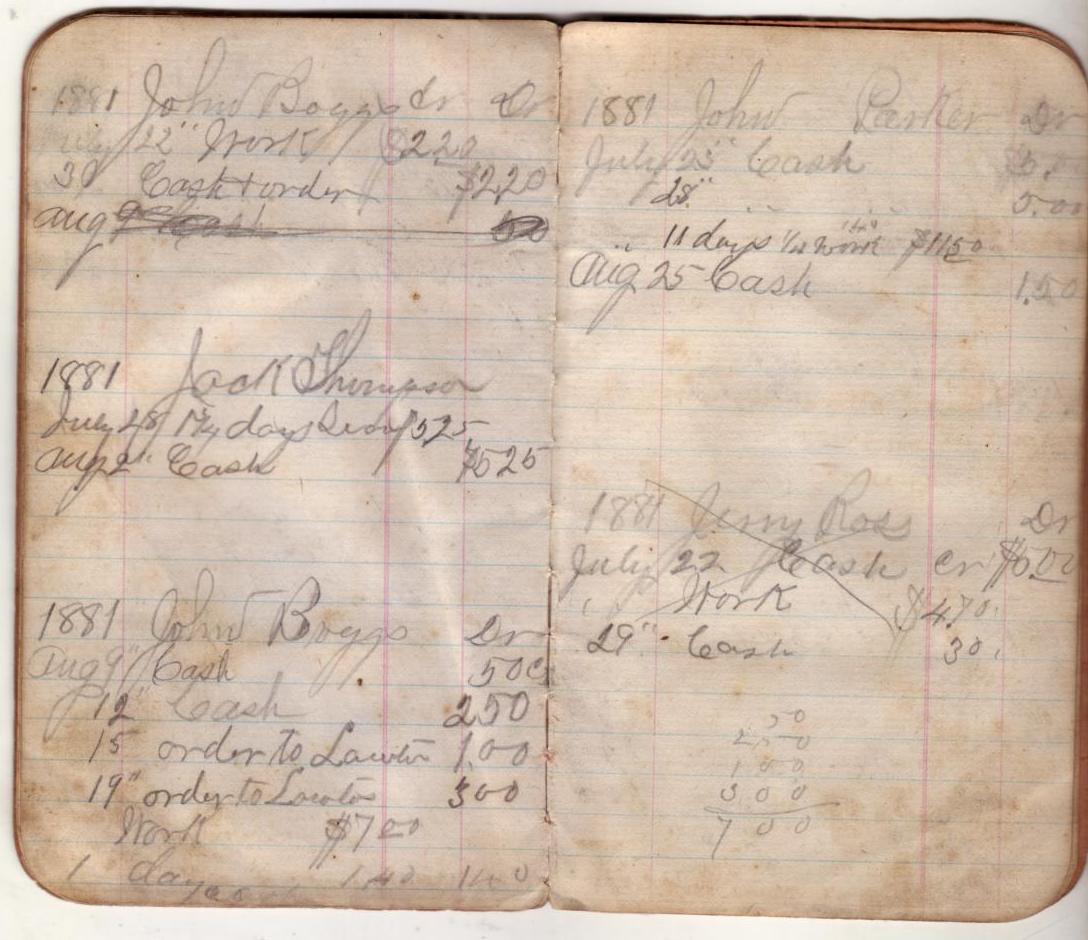 1881 John Boggs cr Dr
July 22" Work $2 20
30 Cash + order $2.20
Aug 9" Cash 50
1881 Jack Thompson
July 28 days $5 25
Aug 2" Cash $5 25
1881 John Boggs Dr
Aug 9" Cash 50 c
12" Cash 2 50
15 order to Lawton 1.00
19" order to Lawton 3 00
Work $7 00
1 day 1 40 1 40
Cash
1881 John Parker Dr
July 23" Cash $5.
28" " " 5.00
" 11 days 1/2 Work $11 50
Aug 25 Cash 1.50
1881 Jerry Ross Dr
July 22 Cash cr $5.00
" Work $4.70
29" Cash 30
50
2 50
1 00
3 00
7 00